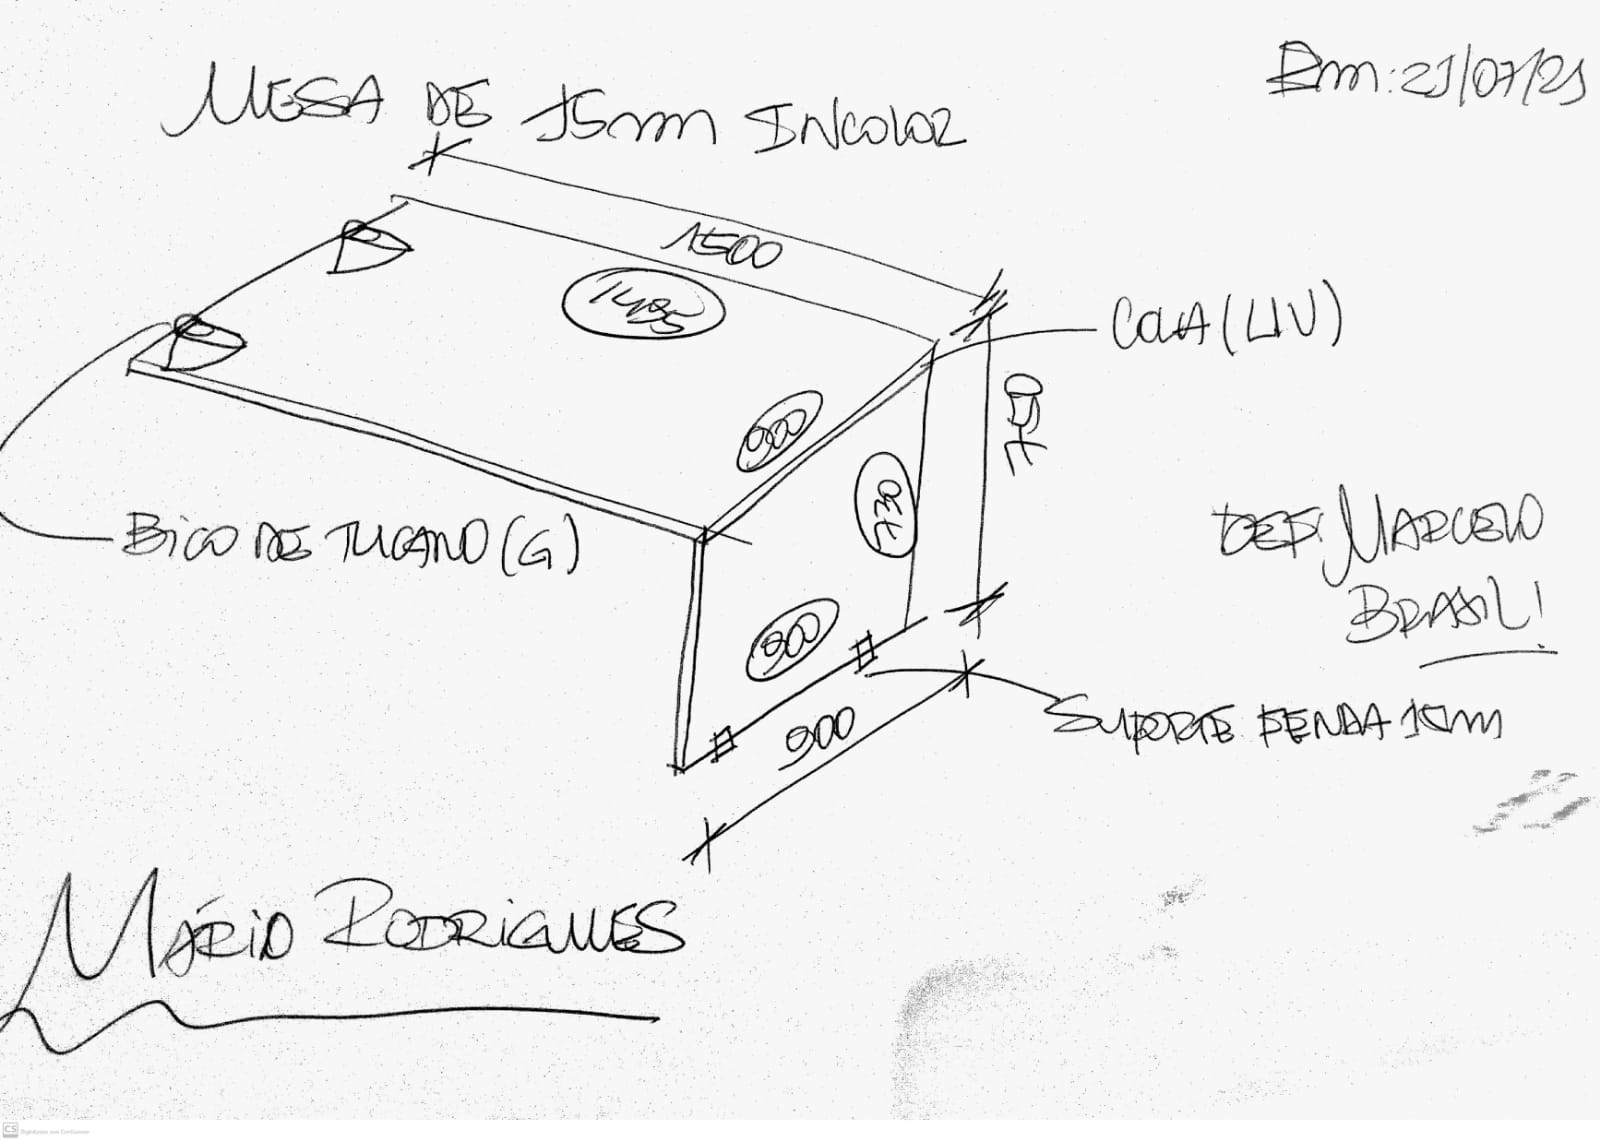 MESA DE 15mm INCOLOR
Em: 21/07/21
1500
1485
COLA (UV)
740
900
730
BICO DE TUCANO (G)
DEP: MARCELO
BRASIL!
900
SUPORTE FENDA 10m
900
MÁRIO RODRIGUES
CS Digitalizado com CamScanner